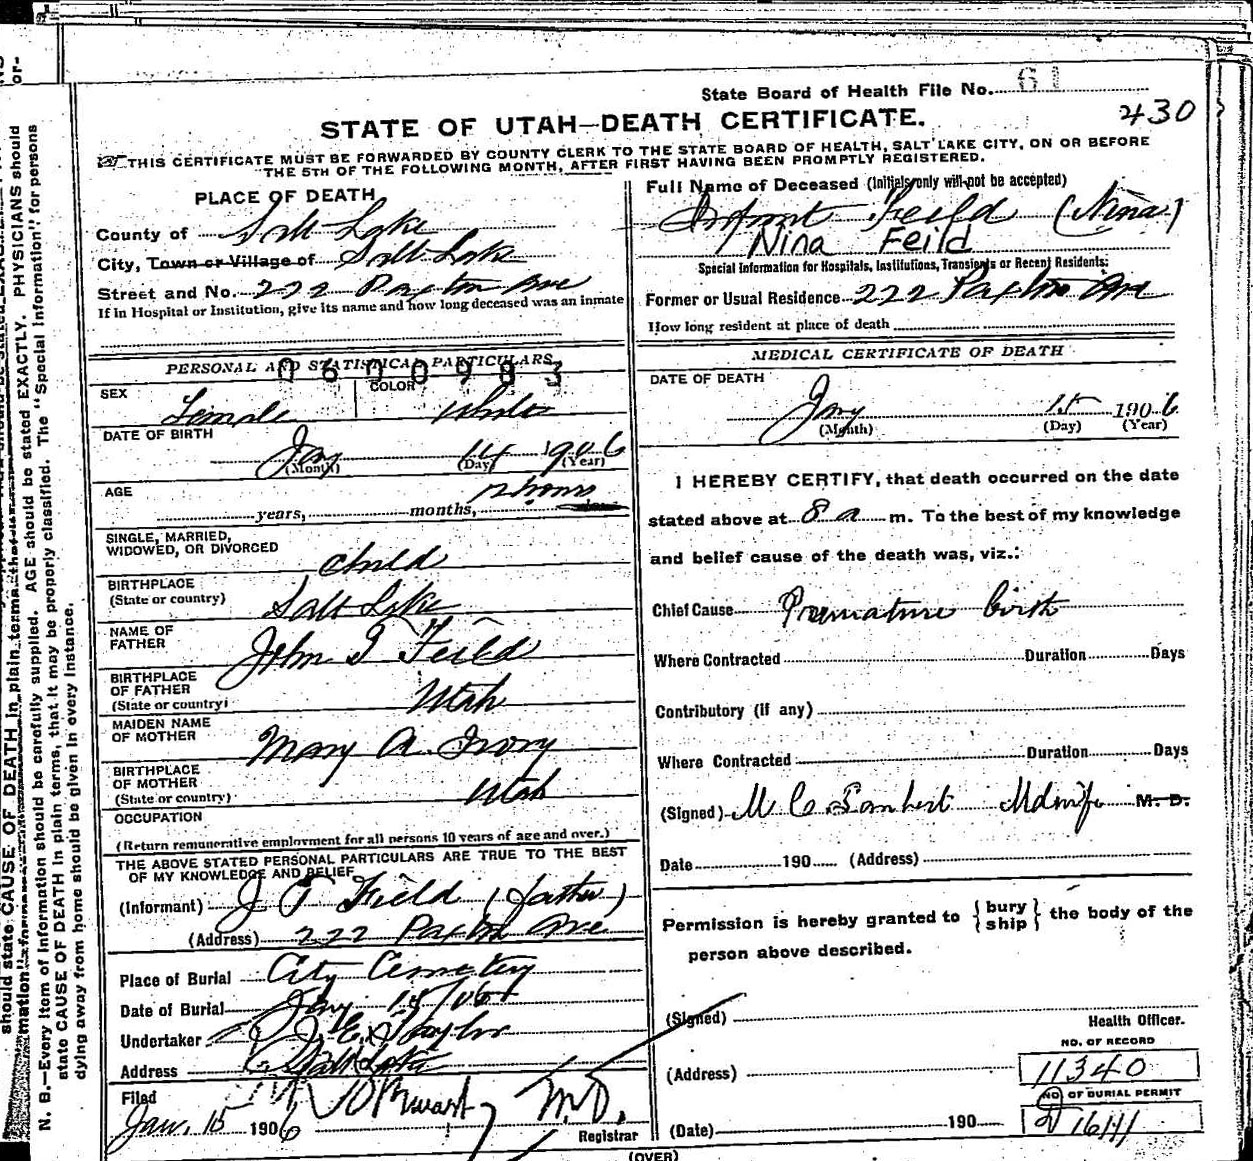 State Board of Health File No. 61
430
STATE OF UTAH—DEATH CERTIFICATE.
THIS CERTIFICATE MUST BE FORWARDED BY COUNTY CLERK TO THE STATE BOARD OF HEALTH, SALT LAKE CITY, ON OR BEFORE
THE 5TH OF THE FOLLOWING MONTH, AFTER FIRST HAVING BEEN PROMPTLY REGISTERED.
PLACE OF DEATH
County of Salt Lake
City, Town or Village of Salt Lake
Street and No. 222 Paxton Ave
If in Hospital or Institution, give its name and how long deceased was an inmate
Full Name of Deceased (Initials only will not be accepted)
Infant Feild (Nina)
Nina Feild
Special Information for Hospitals, Institutions, Transients or Recent Residents:
Former or Usual Residence 222 Paxton Ave
How long resident at place of death
PERSONAL AND STATISTICAL PARTICULARS
0600983
SEX Female COLOR White
DATE OF BIRTH
Jany 14 1906
(Month) (Day) (Year)
AGE
years, months, hours
SINGLE, MARRIED,
WIDOWED, OR DIVORCED Child
BIRTHPLACE
(State or country) Salt Lake
NAME OF
FATHER John T Feild
BIRTHPLACE
OF FATHER
(State or country) Utah
MAIDEN NAME
OF MOTHER Mary A. Ivory
BIRTHPLACE
OF MOTHER
(State or country) Utah
OCCUPATION
(Return remunerative employment for all persons 10 years of age and over.)
THE ABOVE STATED PERSONAL PARTICULARS ARE TRUE TO THE BEST
OF MY KNOWLEDGE AND BELIEF
(Informant) J T Field (father)
(Address) 222 Paxton Ave
Place of Burial City Cemetery
Date of Burial Jany 15/06
Undertaker J. E. Taylor
Address Salt Lake
Filed
Jan. 15 1906
M.D.
Registrar
MEDICAL CERTIFICATE OF DEATH
DATE OF DEATH
Jany 15 1906
(Month) (Day) (Year)
I HEREBY CERTIFY, that death occurred on the date
stated above at 8 a m. To the best of my knowledge
and belief cause of the death was, viz.:
Chief Cause Premature birth
Where Contracted Duration Days
Contributory (if any)
Where Contracted Duration Days
(Signed) M C Lambert Midwife M. D.
Date 190 (Address)
Permission is hereby granted to {bury ship} the body of the
person above described.
(Signed)
Health Officer.
NO. OF RECORD
(Address) 11340
NO. OF BURIAL PERMIT
(Date) 190
(OVER)
N. B.—Every item of information should be carefully supplied. AGE should be stated EXACTLY. PHYSICIANS should
state CAUSE OF DEATH in plain terms, that it may be properly classified. The "Special Information" for persons
dying away from home should be given in every instance.